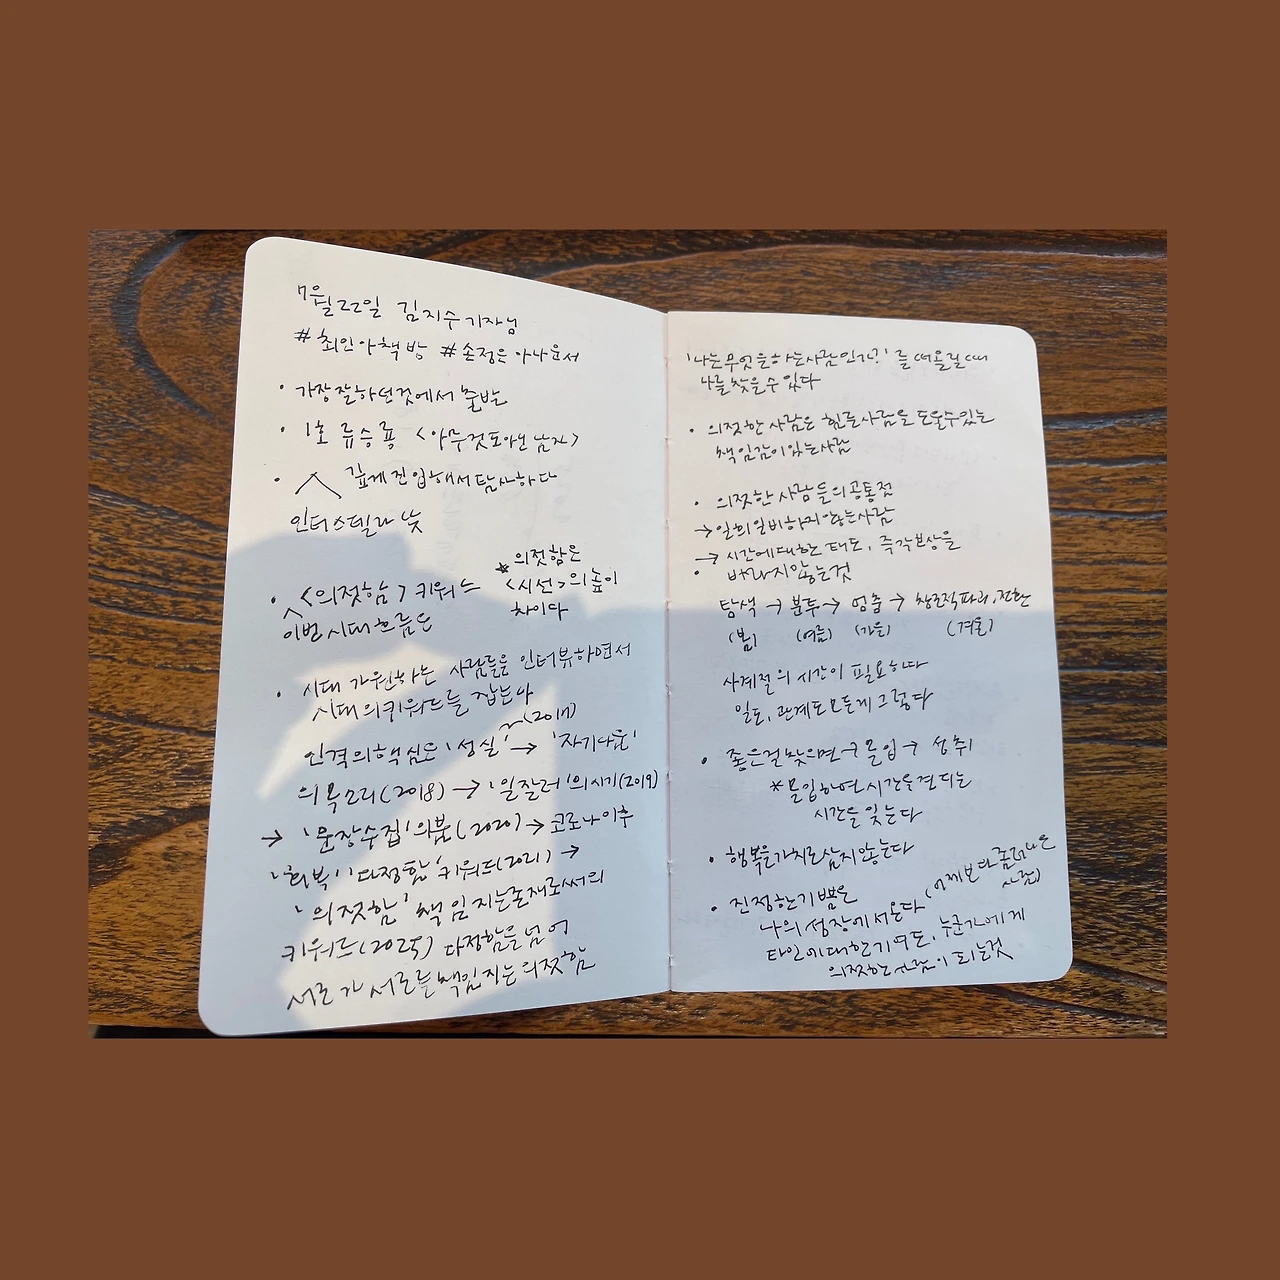 7월 22일 김지수 기자님
#최인아책방 #손정은 아나운서
• 가장 잘하던것에서 출발
• 1호 류승룡 <아무것도 아닌 남자>
• 깊게 진입해서 탐사하다
인터스텔라
• <의젓함> 키워드
이번 시대 흐름은
* 의젓함은
<시선>의 높이
차이다
• 시대 가원하는 사람들을 인터뷰하면서
시대의 키워드를 잡는다
인격의 핵심은 '성실'~(2017) → '자기다움'
의 목소리(2018) → '일잘러'의 시기(2019)
→ '문장수집'의 붐(2020) → 코로나 이후
'회복' '다정함' 키워드(2021) →
'의젓함' 책임 지는 존재로써의
키워드(2025) 다정함을 넘어
서로가 서로를 책임지는 의젓함
'나는 무엇을 하는 사람인가?' 를 떠올릴 때
나를 찾을 수 있다
• 의젓한 사람은 힘든 사람을 도울 수 있는
책임감이 있는 사람
• 의젓한 사람들의 공통점
→ 일희일비하지 않는 사람
→ 시간에 대한 태도, 즉각보상을
• 바라지 않는 것
탐색 → 분투 → 멈춤 → 창조적 파괴, 전환
(봄) (여름) (가을) (겨울)
사계절의 시간이 필요하다
일도, 관계도 모든게 그렇다
• 좋은걸 찾으면 → 몰입 → 성취
* 몰입하면 시간을 견디는
시간을 잊는다
• 행복을 가치로 삼지 않는다
• 진정한 기쁨은
나의 성장에서 온다 (어제보다 좀 더 나은
사람)
타인에 대한 기여도, 누군가에게
의젓한 사람이 되는것